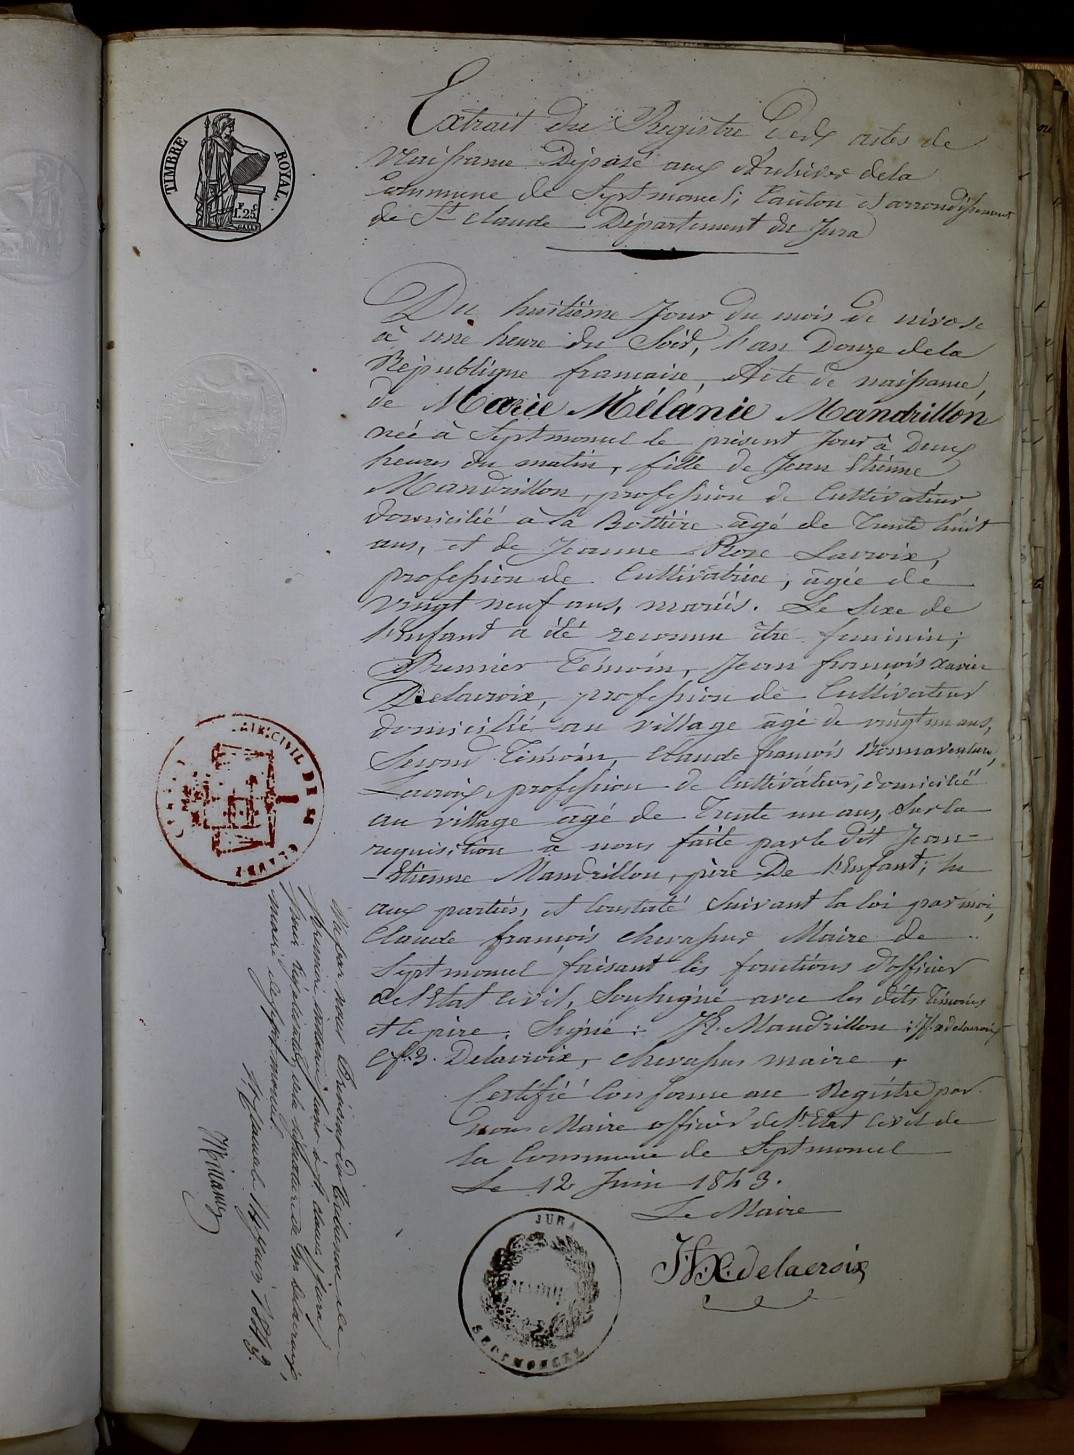 TIMBRE ROYAL
F. C.
1.25
Extrait du Registre des actes de
Naissance Déposé aux Archives de la
Commune de Septmoncel, Canton et arrondissement
de St Claude Département du Jura
Du huitième Jour du mois de nivose
à une heure du Soir, l'an Douze de la
République francaise, Acte de naissance,
de Marie Mélanie Mandrillon
née à Septmoncel le présent Jour à Deux
heures du matin, fille de Jean Etienne
Mandrillon, profession de Cultivateur,
domicilié à la Bottière âgé de Trente huit
ans, et de Jeanne Rose Lacroix,
profession de Cultivatrice, âgée de
vingt neuf ans, mariés. Le Sexe de
l'Enfant a été reconnu être feminin;
Premier Témoin, Jean françois Xavier
Delacroix, profession de Cultivateur
domicilié au village âgé de vingt un ans,
Second Témoin, Claude françois Bonnaventure
Lacroix, profession de Cultivateur, domicilié
au village âgé de Trente un ans, Sur la
requisition à nous faite par le dit Jean=
Etienne Mandrillon, père De l'Enfant; lu
aux parties, et Constaté Suivant la loi par moi,
Claude françois Chevassus Maire de
Septmoncel faisant les fonctions d'officier
de l'Etat Civil, Soussigné avec les dits Témoins
et le père. Signé: JE. Mandrillon; J.f.x delacroix
C.f.B. Delacroix, Chevassus maire.
Certifié Conforme au Registre par
nous Maire officier de l'Etat Civil de
la Commune de Septmoncel
Le 12 Juin 1843.
Le Maire
J.F.X. delacroix
JURA
MAIRIE
SEPTMONCEL
CIVIL DE St CLAUDE
Vu par nous Président du Tribunal de
Première instance séant à St Claude, Jura,
pour légalisation de la signature de Mr Delacroix,
maire de Septmoncel.
St Claude 14 Juin 1843.